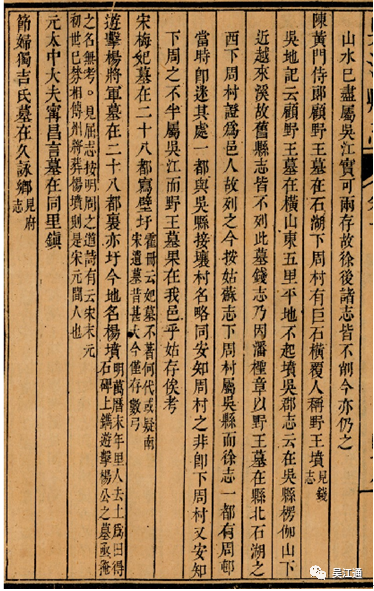 山水已盡屬吳江實可兩存故徐後諸志皆不削今亦仍之
陳黃門侍郎顧野王墓在石湖下周村有巨石橫覆人稱野王墳見錢志
吳地記云顧野王墓在橫山東五里平地不起墳吳郡志云在吳縣楞伽山下
近越來溪故舊縣志皆不列此墓錢志乃因潘檉章以野王墓在縣北石湖之
西下周村證爲邑人故列之今按姑蘇志下周村屬吳縣而徐志一都有周邨
當時卽迷其處一都與吳縣接壤村名略同安知周村之非卽下周村又安知
下周之不半屬吳江而野王墓果在我邑乎姑存俟考
宋梅妃墓在二十八都寫壁圩霍冊云妃墓不著何代或疑南
宋遺墓昔甚大今僅存數弓
遊擊楊將軍墓在二十八都裏亦圩今地名楊墳明萬曆末年里人去土爲田得
石碑上鐫遊擊楊公之墓丞掩
之名無考。見屈志按明周之道詩有云宋末元
初世已移相傳州將葬楊墳則是宋元間人也
元太中大夫甯昌言墓在同里鎮
節婦獨吉氏墓在久詠鄉見府志
吴江通